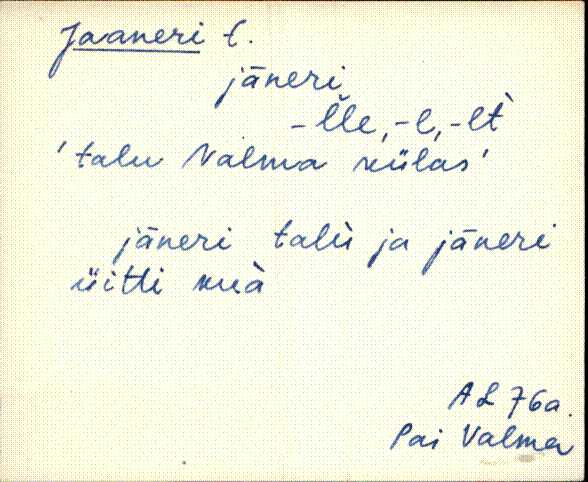 Jaaneri t.
jāneri
-l̆le, -l, -lt̀
'talu Valma külas'
jāneri talù ja jāneri
üitti kuà
AL 76a.
Pai Valma